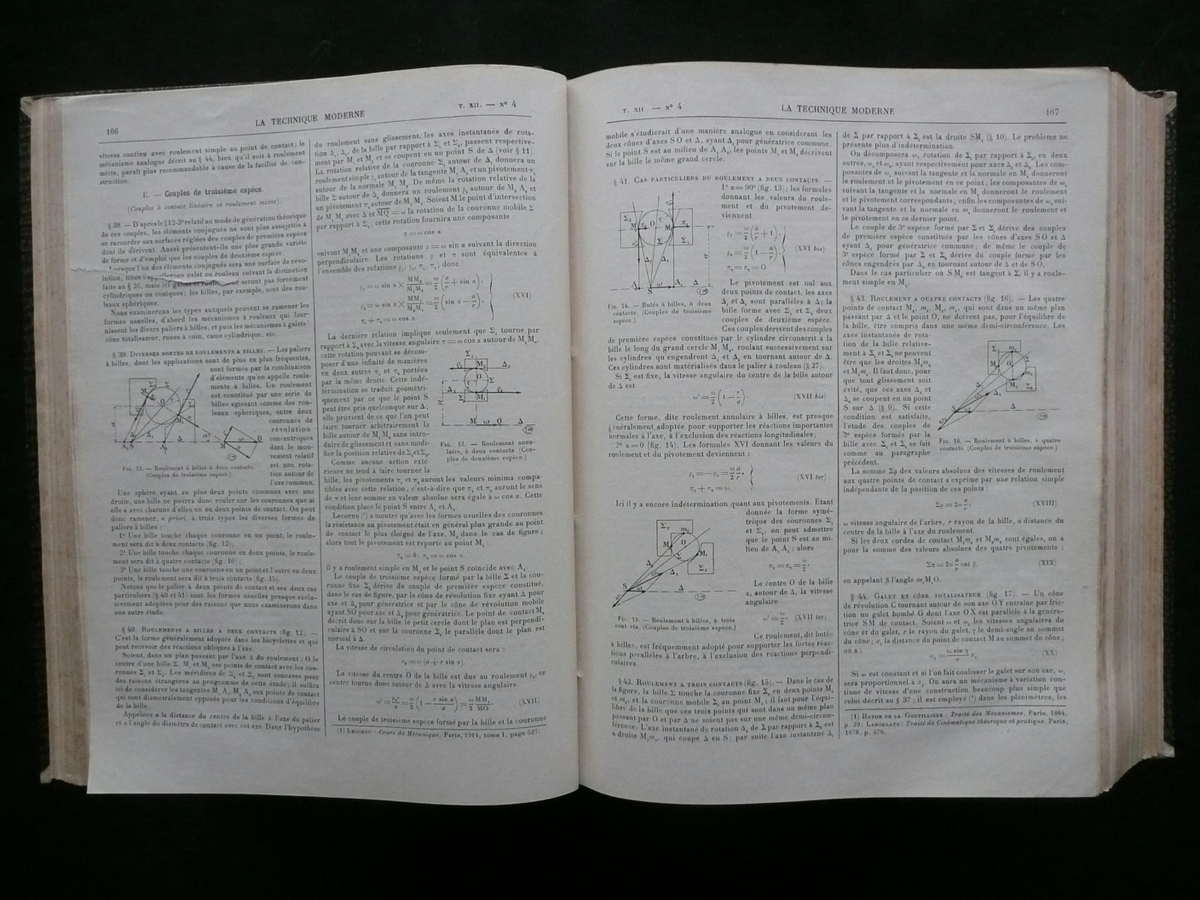 166
LA TECHNIQUE MODERNE
T. XII. — N° 4
vitesse continu avec roulement simple au point de contact; le
mécanisme analogue décrit au § 44, bien qu'il soit à roulement
mixte, paraît plus recommandable à cause de la facilité de con-
struction.
E. — Couples de troisième espèce.
(Couples à contact linéaire et roulement mixte).
§ 38. — D'après le § 12-3° relatif au mode de génération théorique
de ces couples, les éléments conjugués ne sont plus assujettis à
se raccorder aux surfaces réglées des couples de première espèce
dont ils dérivent. Aussi présentent-ils une plus grande variété
de forme et d'emploi que les couples de deuxième espèce.
Lorsque l'un des éléments conjugués sera une surface de révo-
lution, nous l'appellerons galet ou rouleau suivant la distinction
faite au § 26, mais ici galets et rouleaux ne seront pas forcément
cylindriques ou coniques; les billes, par exemple, sont des rou-
leaux sphériques.
Nous examinerons les types auxquels peuvent se ramener les
formes usuelles, d'abord les mécanismes à rouleaux qui four-
nissent les divers paliers à billes, et puis les mécanismes à galets :
cône totalisateur, roues à coin, came cylindrique, etc.
§ 39. DIVERSES SORTES DE ROULEMENTS A BILLES. — Les paliers
à billes, dont les applications sont de plus en plus fréquentes,
sont formés par la combinaison
d'éléments qu'on appelle roule-
ments à billes. Un roulement
est constitué par une série de
billes agissant comme des rou-
leaux sphériques, entre deux
couronnes de
révolution
concentriques
dont le mou-
vement relatif
est une rota-
tion autour de
l'axe commun.
FIG. 12. — Roulement à billes à deux contacts.
(Couples de troisième espèce.)
Une sphère ayant au plus deux points communs avec une
droite, une bille ne pourra donc rouler sur les couronnes que si
elle a avec chacune d'elles un ou deux points de contact. On peut
donc ramener, a priori, à trois types les diverses formes de
paliers à billes :
1° Une bille touche chaque couronne en un point, le roule-
ment sera dit à deux contacts (fig. 12);
2° Une bille touche chaque couronne en deux points, le roule-
ment sera dit à quatre contacts (fig. 16);
3° Une bille touche une couronne en un point et l'autre en deux
points, le roulement sera dit à trois contacts (fig. 15).
Notons que le palier à deux points de contact et ses deux cas
particuliers (§ 40 et 41) sont les formes usuelles presque exclu-
sivement adoptées pour des raisons que nous examinerons dans
une autre étude.
§ 40. ROULEMENTS A BILLES A DEUX CONTACTS (fig 12). —
C'est la forme généralement adoptée dans les bicyclettes et qui
peut recevoir des réactions obliques à l'axe.
Soient, dans un plan passant par l'axe Δ du roulement : O le
centre d'une bille Σ, M₁ et M₂ ses points de contact avec les cou-
ronnes Σ₁ et Σ₂. Les méridiens de Σ₁ et Σ₂ sont concaves pour
des raisons étrangères au programme de cette étude; il suffira
ici de considérer les tangentes M₁ A₁, M₂ A₂ aux points de contact
qui sont diamétralement opposés pour les conditions d'équilibre
de la bille.
Appelons a la distance du centre de la bille à l'axe du palier
et α l'angle du diamètre de contact avec cet axe. Dans l'hypothèse
du roulement sans glissement, les axes instantanés de rota-
tion Δ₁, Δ₂, de la bille par rapport à Σ₁ et Σ₂, passent respective-
ment par M₁ et M₂ et se coupent en un point S de Δ (voir § 11).
La rotation relative de la couronne Σ₁ autour de Δ₁ donnera un
roulement simple ρ₁ autour de la tangente M₁ A₁ et un pivotement π₁
autour de la normale M₁ M₂. De même la rotation relative de la
bille Σ autour de Δ₂ donnera un roulement ρ₂ autour de M₂ A₂ et
un pivotement π₂ autour de M₁M₂. Soient M le point d'intersection
de M₁M₂ avec Δ et MQ = ω la rotation de la couronne mobile Σ
par rapport à Σ₁; cette rotation fournira une composante :
π = ω cos α
suivant M₁M₂ et une composante ρ = ω sin α suivant la direction
perpendiculaire. Les rotations ρ et π sont équivalentes à
l'ensemble des rotations ρ₁, ρ₂, π₁, π₂; donc :
(XVI)
π₁ + π₂ = ω cos α
La dernière relation implique seulement que Σ₂ tourne par
rapport à Σ₁ avec la vitesse angulaire π = ω cos α autour de M₁M₂,
cette rotation pouvant se décom-
poser d'une infinité de manières
en deux autres π₁ et π₂ portées
par la même droite. Cette indé-
termination se traduit géométri-
quement par ce que le point S
peut être pris quelconque sur Δ;
elle provient de ce que l'on peut
faire tourner arbitrairement la
bille autour de M₁M₂ sans intro-
duire de glissement et sans modi-
fier la position relative de Σ₁ et Σ₂.
Comme aucune action exté-
rieure ne tend à faire tourner la
FIG. 13. — Roulement annu-
laire, à deux contacts. (Cou-
ples de deuxième espèce.)
bille, les pivotements π₁ et π₂ auront les valeurs minima compa-
tibles avec cette relation; c'est-à-dire que π₁ et π₂ auront le sens
de π et leur somme en valeur absolue sera égale à ω cos α. Cette
condition place le point S entre A₁ et A₂.
Lecornu (¹) a montré qu'avec les formes usuelles des couronnes
la résistance au pivotement était en général plus grande au point
de contact le plus éloigné de l'axe, M₂ dans le cas de figure;
alors tout le pivotement est reporté au point M₁ :
π₂ = 0; π₁ = ω cos α.
il y a roulement simple en M₂ et le point S coïncide avec A₂
Le couple de troisième espèce formé par la bille et la cou-
ronne fixe Σ₁ dérive du couple de première espèce constitué,
dans le cas de figure, par le cône de révolution fixe ayant Δ pour
axe et Δ₁ pour génératrice et par le cône de révolution mobile
ayant SO pour axe et Δ₁ pour génératrice. Le point de contact M₁
décrit donc sur la bille le petit cercle dont le plan est perpendi-
culaire à SO et sur la couronne Σ₁ le parallèle dont le plan est
normal à Δ
La vitesse de circulation du point de contact sera :
La vitesse du centre O de la bille est due au roulement ρ₁, ce
centre tourne donc autour de Δ avec la vitesse angulaire
(XVII)
Le couple de troisième espèce formé par la bille et la couronne
(1) LECORNU : Cours de Mécanique, Paris, 1914, tome I, page 527.
T. XII — N° 4
LA TECHNIQUE MODERNE
167
mobile s'étudierait d'une manière analogue en considérant les
deux cônes d'axes SO et Δ, ayant Δ₂ pour génératrice commune.
Si le point S est au milieu de A₁ A₂, les points M₁ et M₂ décrivent
sur la bille le même grand cercle.
§ 41. CAS PARTICULIERS DU ROULEMENT A DEUX CONTACTS. —
1° α = 90° (fig. 13); les formules
donnent les valeurs du roule-
ment et du pivotement de-
viennent
(XVI bis)
π₁ = π₂ = 0
FIG. 14. — Butée à billes, à deux
contacts. (Couples de troisième
espèce.)
Le pivotement est nul aux
deux points de contact, les axes
Δ₁ et Δ₂ sont parallèles à Δ; la
bille forme avec Σ₁ et Σ₂ deux
couples de deuxième espèce.
Ces couples dérivent des couples
de première espèce constitués par le cylindre circonscrit à la
bille le long du grand cercle M₁M₂, roulant successivement sur
les cylindres qu'engendrent Δ₁ et Δ₂ en tournant autour de Δ.
Ces cylindres sont matérialisés dans le palier à rouleau (§ 27).
Si Σ₁ est fixe, la vitesse angulaire du centre de la bille autour
de Δ est
(XVII bis)
Cette forme, dite roulement annulaire à billes, est presque
généralement adoptée pour supporter les réactions importantes
normales à l'axe, à l'exclusion des réactions longitudinales;
2° α = 0 (fig. 14). Les formules XVI donnant les valeurs du
roulement et du pivotement deviennent :
(XVI ter)
π₁ + π₂ = ω.
Ici il y a encore indétermination quant aux pivotements. Étant
donnée la forme symé-
trique des couronnes Σ₁
et Σ₂, on peut admettre
que le point S est au mi-
lieu de A₁ A₂; alors
Le centre O de la bille
a, autour de Δ, la vitesse
angulaire
(XVII ter)
FIG. 15. — Roulement à billes, à trois
contacts. (Couples de troisième espèce.)
Ce roulement, dit butée
à billes, est fréquemment adopté pour supporter les fortes réac-
tions parallèles à l'arbre, à l'exclusion des réactions perpendi-
culaires.
§ 42. ROULEMENT A TROIS CONTACTS (fig. 15). — Dans le cas de
la figure, la bille Σ touche la couronne fixe Σ₁ en deux points M₁
et m₁, et la couronne mobile Σ₂ au point M₂; il faut pour l'équi-
libre de la bille que ces trois points qui sont dans un même plan
passant par O et par Δ ne soient pas sur une même demi-circon-
férence. L'axe instantané de rotation Δ₁ de Σ par rapport à Σ₁ est
la droite M₁m₁, qui coupe Δ en S; par suite l'axe instantané Δ₂
de Σ par rapport à Σ₂ est la droite SM₂ (§ 10). Le problème ne
présente plus d'indétermination.
On décomposera ω, rotation de Σ₂ par rapport à Σ₁, en deux
autres, ω₁ et ω₂, ayant respectivement pour axes Δ₁ et Δ₂. Les com-
posantes de ω₁ suivant la tangente et la normale en M₁ donneront
le roulement et le pivotement en ce point; les composantes de ω₁
suivant la tangente et la normale en m₁ donneront le roulement et
le pivotement correspondants; enfin les composantes de ω₂ sui-
vant la tangente et la normale en M₂ donneront le roulement et
le pivotement en ce dernier point.
Le couple de 3ᵉ espèce formé par Σ et Σ₁ dérive des couples
de première espèce constitués par les cônes d'axes SO et Δ
ayant Δ₁ pour génératrice commune; de même le couple de
3ᵉ espèce formé par Σ et Σ₂ dérive du couple formé par les
cônes engendrés par Δ₂ en tournant autour de Δ et de SO.
Dans le cas particulier où SM₂ est tangent à Σ, il y a roule-
ment simple en M₂
§ 43. ROULEMENT A QUATRE CONTACTS (fig. 16). — Les quatre
points de contact M₁, m₁, M₂, m₂, qui sont dans un même plan
passant par Δ et le point O, ne doivent pas, pour l'équilibre de
la bille, être compris dans une même demi-circonférence. Les
axes instantanés de rota-
tion de la bille relative-
ment à Σ₁ et Σ₂ ne peuvent
être que les droites M₁m₁
et M₂m₂. Il faut donc, pour
que tout glissement soit
évité, que ces axes Δ₁ et
Δ₂ se coupent en un point
S sur Δ (§ 9). Si cette
condition est satisfaite,
l'étude des couples de
3ᵉ espèce formés par la
bille avec Σ₁ et Σ₂ se fait
comme au paragraphe
précédent.
FIG. 16. — Roulement à billes, à quatre
contacts. (Couples de troisième espèce.)
La somme Σρ des valeurs absolues des vitesses de roulement
aux quatre points de contact s'exprime par une relation simple
indépendante de la position de ces points :
(XVIII)
ω vitesse angulaire de l'arbre, r rayon de la bille, a distance du
centre de la bille à l'axe du roulement.
Si les deux cordes de contact M₁m₁ et M₂m₂ sont égales, on a
pour la somme des valeurs absolues des quatre pivotements :
(XIX)
en appelant β l'angle m₁M₁O.
§ 44. GALET ET CÔNE TOTALISATEUR (fig. 17). — Un cône
de révolution C tournant autour de son axe OY entraîne par fric-
tion un galet bombé G dont l'axe OX est parallèle à la généra-
trice SM de contact. Soient ω et ω₁ les vitesses angulaires du
cône et du galet, r le rayon du galet, γ le demi-angle au sommet
du cône; x₁ la distance du point de contact M au sommet du cône;
on a :
(XX)
Si ω est constant et si l'on fait coulisser le galet sur son axe, ω₁
sera proportionnel à x₁. On aura un mécanisme à variation con-
tinue de vitesse d'une construction beaucoup plus simple que
celui décrit au § 37; il est employé (¹) dans les planimètres,
(1) HATON DE LA GOUPILLIÈRE : Traité des Mécanismes. Paris, 1864,
p. 39.
1878, p. 576.